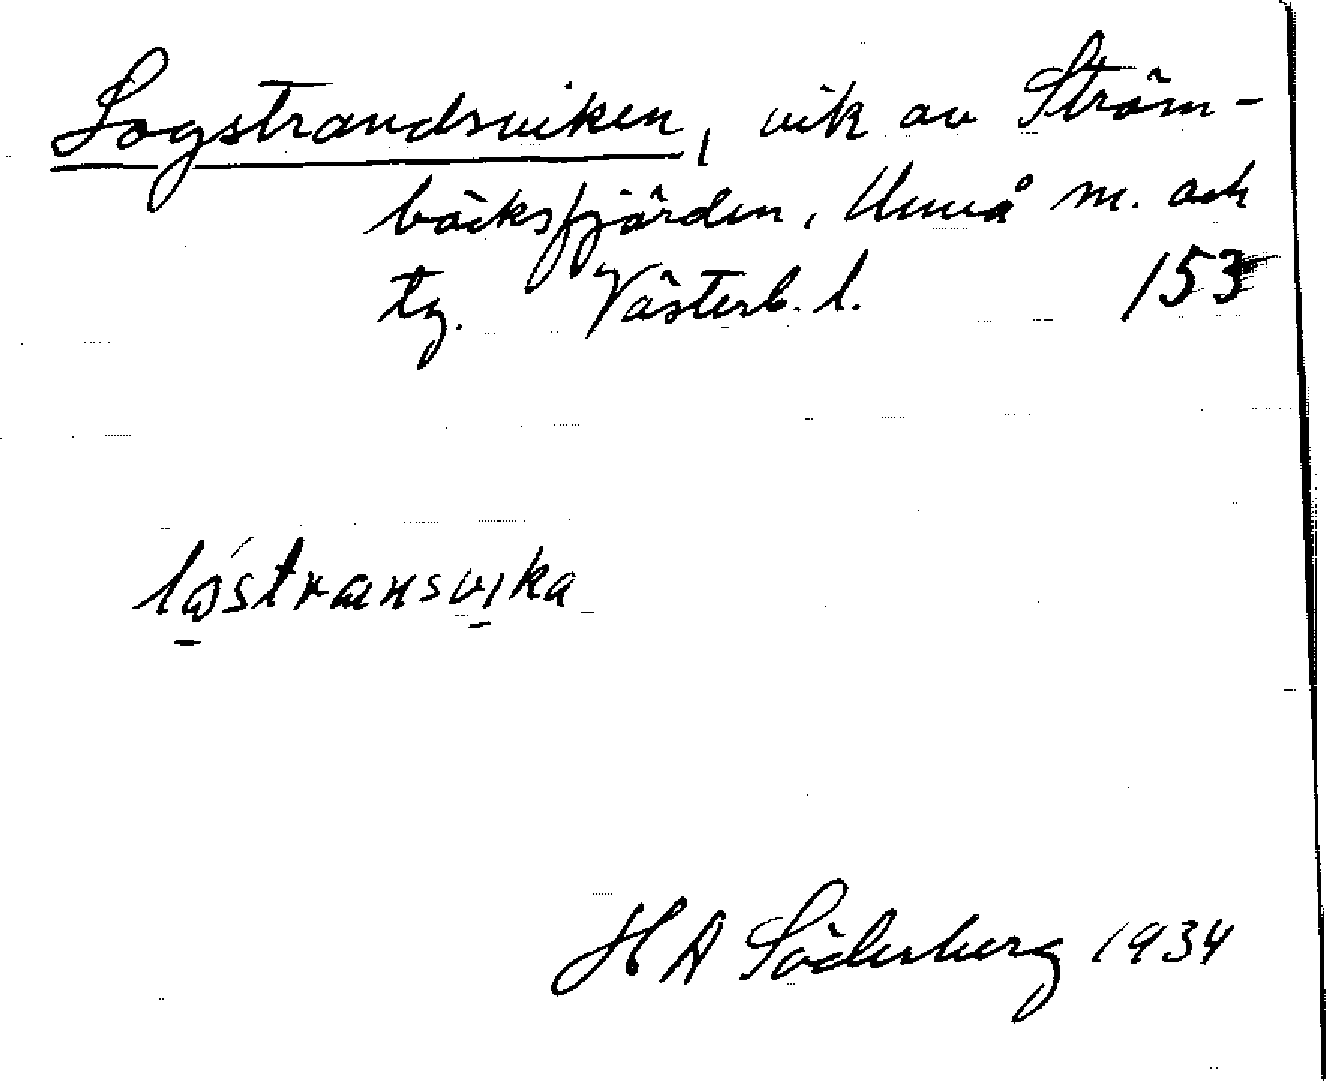 Logstrandsviken, vik av Ström-
bäcksfjärden, Umeå m. och
tg. Västerb. l. 153
lostransvika
H A Söderberg 1934